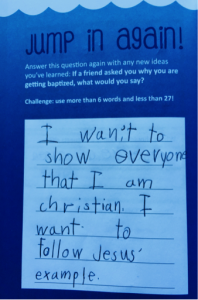 Jump in again!
Answer this question again with any new ideas
you've learned: If a friend asked you why you are
getting baptized, what would you say?
Challenge: use more than 6 words and less than 27!
I wan't to
show everyone
that I am
christian. I
want to
follow Jesus'
example.